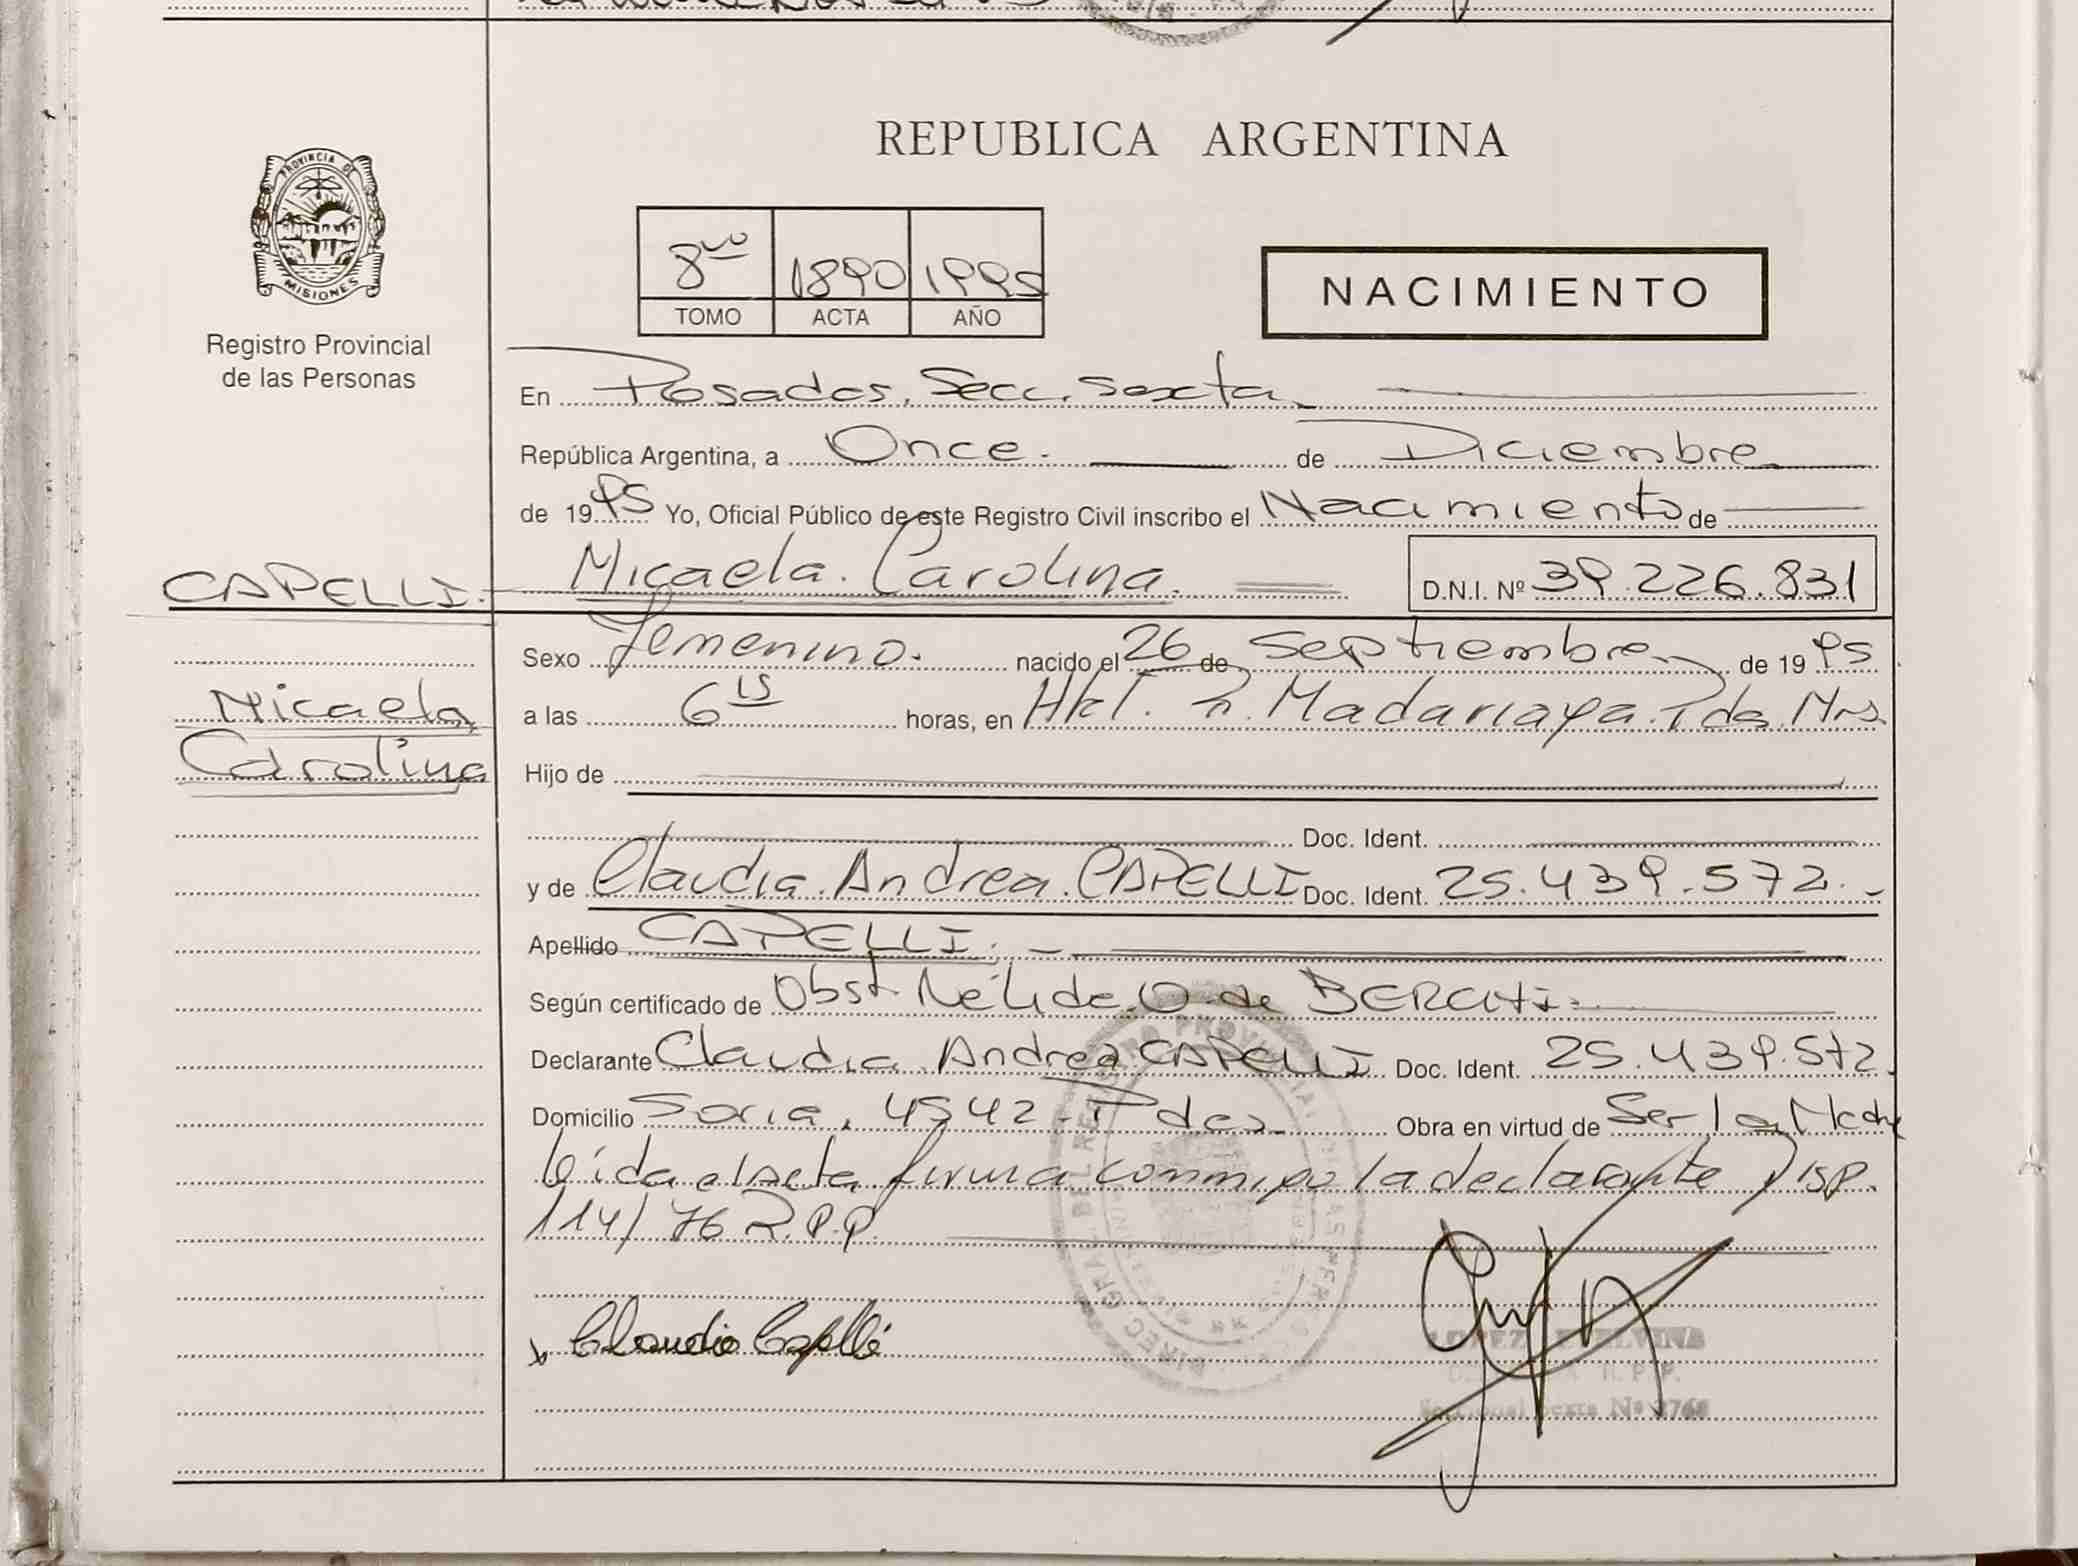 REPUBLICA ARGENTINA
PROVINCIA DE
MISIONES
Registro Provincial
de las Personas
8vo 1890 1995
TOMO ACTA AÑO
NACIMIENTO
En Posadas, Secc. Sexta
República Argentina, a Once. de Diciembre
de 1995 Yo, Oficial Público de este Registro Civil inscribo el Nacimiento de
CAPELLI. Micaela. Carolina. D.N.I. Nº 39.226.831
Sexo Femenino. nacido el 26 de Septiembre de 1995
Micaela
Carolina
a las 6 15 horas, en Hptl. R. Madariaga. Pdas. Mns.
Hijo de
Doc. Ident.
y de Claudia. Andrea. CAPELLI Doc. Ident. 25.439.572.-
Apellido CAPELLI. -
Según certificado de Obst. Nélida O. de
Declarante Claudia. Andrea CAPELLI Doc. Ident. 25.439.572.
Domicilio Soria, 4542 - Pdas. Obra en virtud de Ser la Madre
leída el Acta firma conmigo la declarante Disp.
114/76 R.P.P.
Claudia Capelli
LOPEZ ETELVINA
R.P.P.
Seccional Sexta Nº